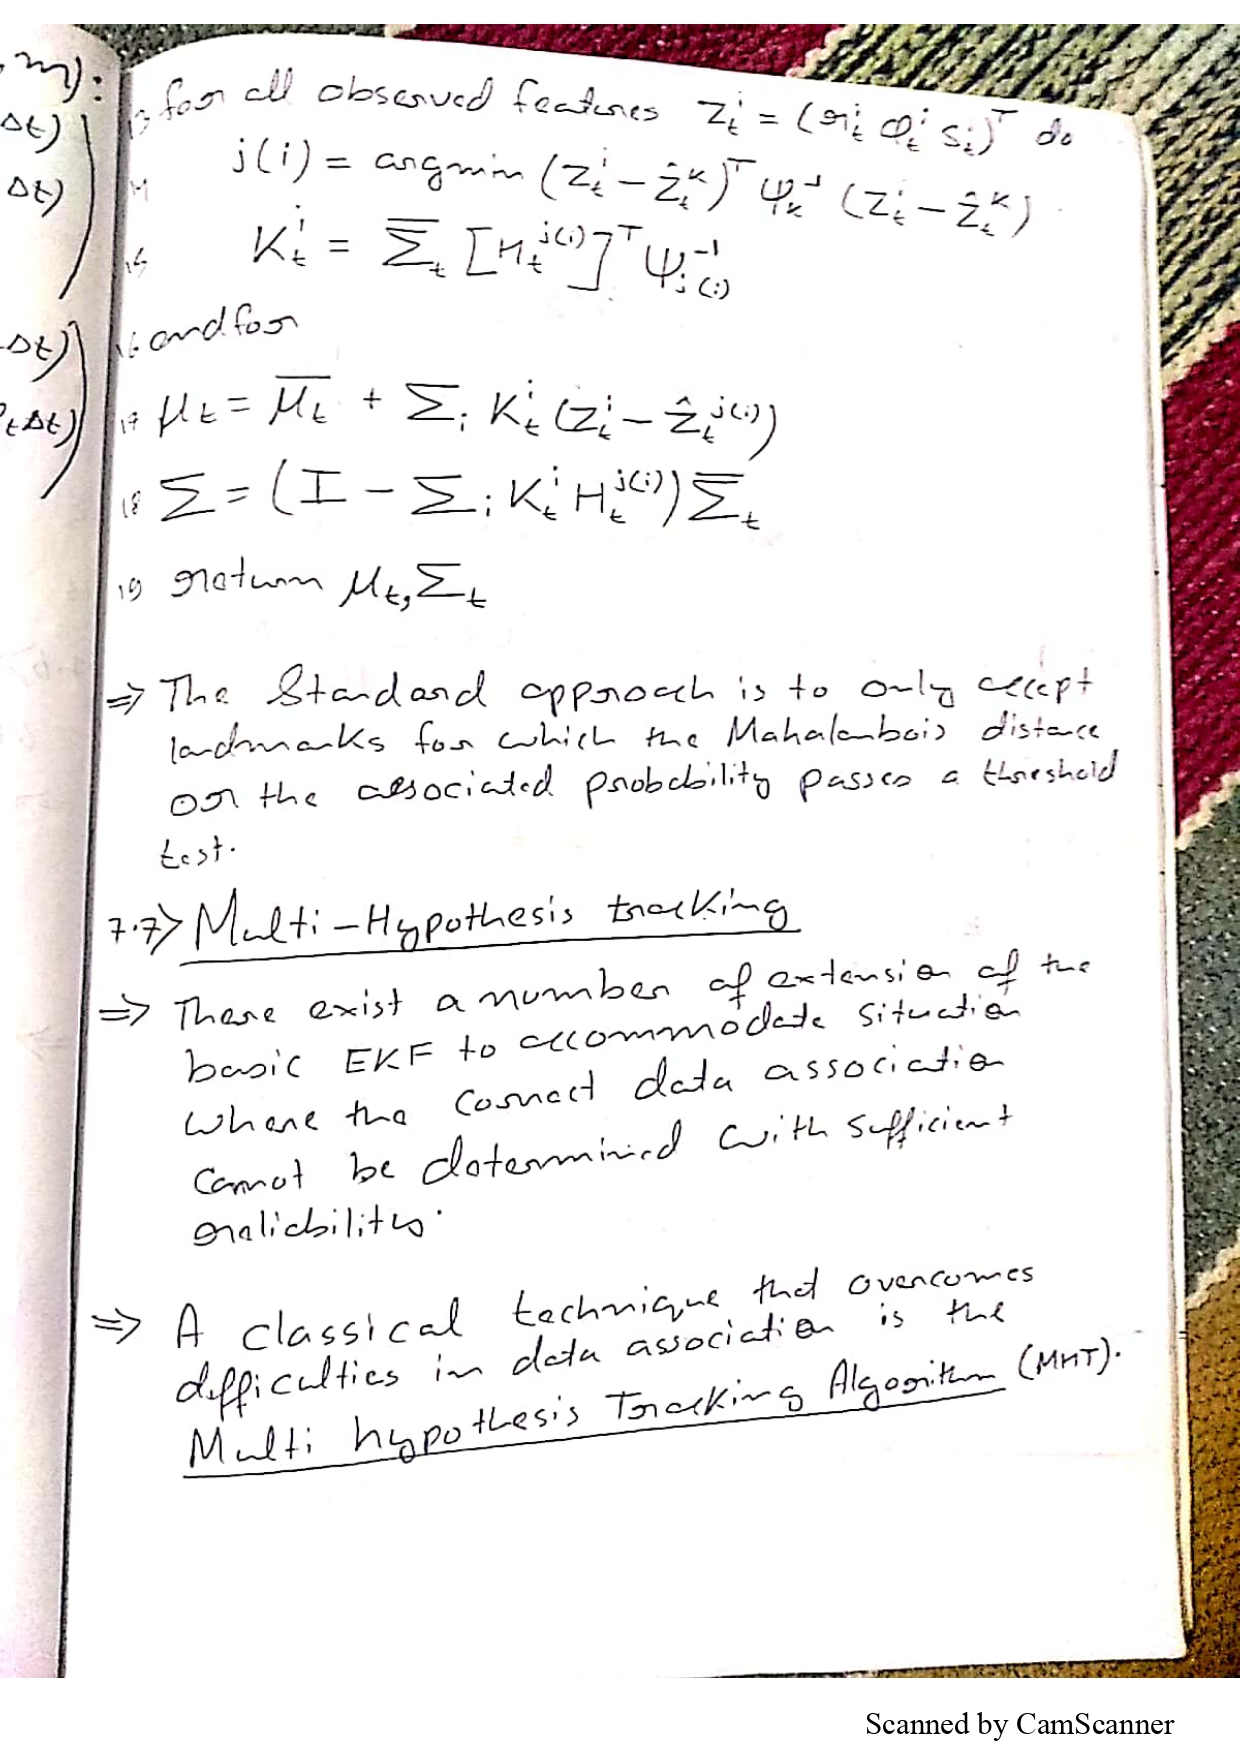 13 for all observed features z_t^i = (r_t^i φ_t^i s_t^i)^T do
14 j(i) = argmin (z_t^i − ẑ_t^k)^T Ψ_k^-1 (z_t^i − ẑ_t^k)
15 K_t^i = Σ̅_t [H_t^j(i)]^T Ψ_j(i)^-1
16 endfor
17 μ_t = μ̅_t + Σ_i K_t^i (z_t^i − ẑ_t^j(i))
18 Σ = (I − Σ_i K_t^i H_t^j(i)) Σ̅_t
19 return μ_t, Σ_t
⇒ The Standard approach is to only accept
landmarks for which the Mahalanbois distance
or the associated probability passes a threshold
test.
7.7> Multi-Hypothesis tracking
⇒ There exist a number of extension of the
basic EKF to accommodate situation
where the correct data association
cannot be determined with sufficient
reliability.
⇒ A classical technique that overcomes
difficulties in data association is the
Multi hypothesis Tracking Algorithm (MHT).
Δt)
Δt)
Δt)
tΔt)
Scanned by CamScanner